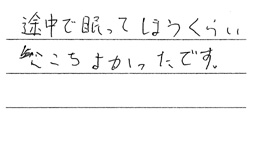 途中で眠ってしまうくらい
心こちよかったです。